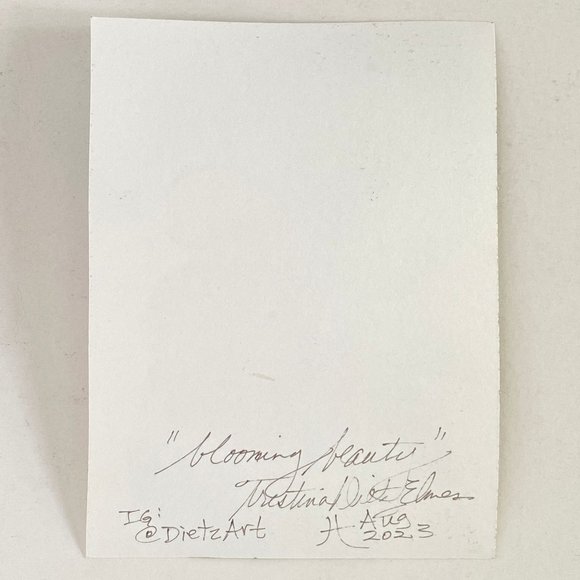 "blooming beauty"
Trestina Dietz Elmes
IG: Aug
@DietzArt 2023